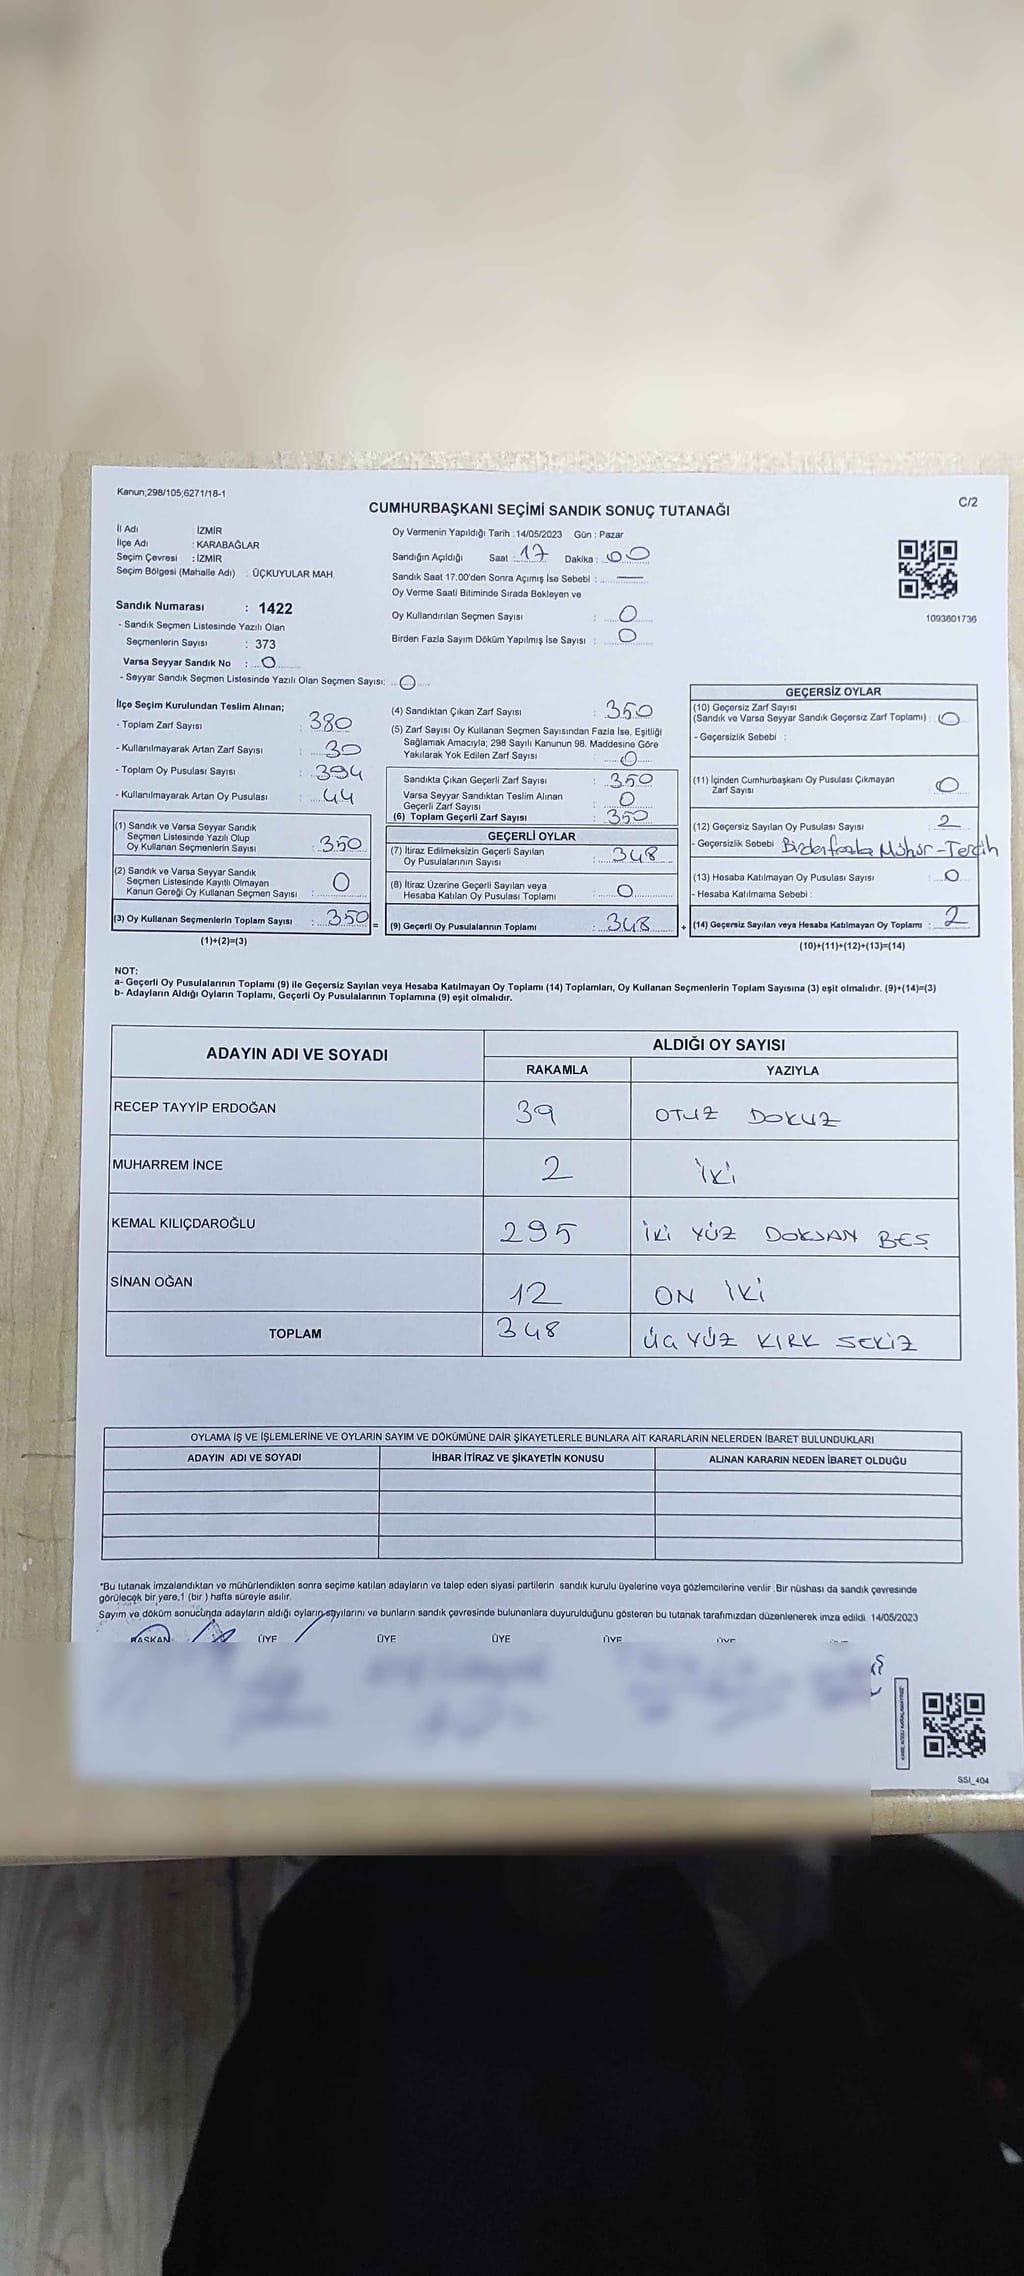 Kanun;298/105;6271/18-1
C/2
CUMHURBAŞKANI SEÇİMİ SANDIK SONUÇ TUTANAĞI
İl Adı : İZMİR
İlçe Adı : KARABAĞLAR
Seçim Çevresi : İZMİR
Seçim Bölgesi (Mahalle Adı) : ÜÇKUYULAR MAH.
Sandık Numarası : 1422
- Sandık Seçmen Listesinde Yazılı Olan
Seçmenlerin Sayısı : 373
Varsa Seyyar Sandık No : 0
- Seyyar Sandık Seçmen Listesinde Yazılı Olan Seçmen Sayısı: 0
Oy Vermenin Yapıldığı Tarih : 14/05/2023 Gün : Pazar
Sandığın Açıldığı Saat : 17 Dakika : 00
Sandık Saat 17.00'den Sonra Açımış İse Sebebi : —
Oy Verme Saati Bitiminde Sırada Bekleyen ve
Oy Kullandırılan Seçmen Sayısı : 0
Birden Fazla Sayım Döküm Yapılmış İse Sayısı : 0
1093801736
İlçe Seçim Kurulundan Teslim Alınan;
- Toplam Zarf Sayısı : 380
- Kullanılmayarak Artan Zarf Sayısı : 30
- Toplam Oy Pusulası Sayısı : 394
- Kullanılmayarak Artan Oy Pusulası : 44
(1) Sandık ve Varsa Seyyar Sandık
Seçmen Listesinde Yazılı Olup
Oy Kullanan Seçmenlerin Sayısı : 350
(2) Sandık ve Varsa Seyyar Sandık
Seçmen Listesinde Kayıtlı Olmayan
Kanun Gereği Oy Kullanan Seçmen Sayısı : 0
(3) Oy Kullanan Seçmenlerin Toplam Sayısı : 350
(1)+(2)=(3)
=
(4) Sandıktan Çıkan Zarf Sayısı : 350
(5) Zarf Sayısı Oy Kullanan Seçmen Sayısından Fazla İse, Eşitliği
Sağlamak Amacıyla; 298 Sayılı Kanunun 98. Maddesine Göre
Yakılarak Yok Edilen Zarf Sayısı : 0
Sandıkta Çıkan Geçerli Zarf Sayısı : 350
Varsa Seyyar Sandıktan Teslim Alınan
Geçerli Zarf Sayısı : 0
(6) Toplam Geçerli Zarf Sayısı : 350
GEÇERLİ OYLAR
(7) İtiraz Edilmeksizin Geçerli Sayılan
Oy Pusulalarının Sayısı : 348
(8) İtiraz Üzerine Geçerli Sayılan veya
Hesaba Katılan Oy Pusulası Toplamı : 0
(9) Geçerli Oy Pusulalarının Toplamı : 348
+
GEÇERSİZ OYLAR
(10) Geçersiz Zarf Sayısı
(Sandık ve Varsa Seyyar Sandık Geçersiz Zarf Toplamı) : 0
- Geçersizlik Sebebi :
(11) İçinden Cumhurbaşkanı Oy Pusulası Çıkmayan
Zarf Sayısı : 0
(12) Geçersiz Sayılan Oy Pusulası Sayısı : 2
- Geçersizlik Sebebi Birden fazla Mühür-Tercih
(13) Hesaba Katılmayan Oy Pusulası Sayısı : 0
- Hesaba Katılmama Sebebi :
(14) Geçersiz Sayılan veya Hesaba Katılmayan Oy Toplamı : 2
(10)+(11)+(12)+(13)=(14)
NOT:
a- Geçerli Oy Pusulalarının Toplamı (9) ile Geçersiz Sayılan veya Hesaba Katılmayan Oy Toplamı (14) Toplamları, Oy Kullanan Seçmenlerin Toplam Sayısına (3) eşit olmalıdır. (9)+(14)=(3)
b- Adayların Aldığı Oyların Toplamı, Geçerli Oy Pusulalarının Toplamına (9) eşit olmalıdır.
ADAYIN ADI VE SOYADI
ALDIĞI OY SAYISI
RAKAMLA YAZIYLA
RECEP TAYYİP ERDOĞAN 39 OTUZ DOKUZ
MUHARREM İNCE 2 İKİ
KEMAL KILIÇDAROĞLU 295 İKİ YÜZ DOKSAN BEŞ
SİNAN OĞAN 12 ON İKİ
TOPLAM 348 ÜÇ YÜZ KIRK SEKİZ
OYLAMA İŞ VE İŞLEMLERİNE VE OYLARIN SAYIM VE DÖKÜMÜNE DAİR ŞİKAYETLERLE BUNLARA AİT KARARLARIN NELERDEN İBARET BULUNDUKLARI
ADAYIN ADI VE SOYADI İHBAR İTİRAZ VE ŞİKAYETİN KONUSU ALINAN KARARIN NEDEN İBARET OLDUĞU
*Bu tutanak imzalandıktan ve mühürlendikten sonra seçime katılan adayların ve talep eden siyasi partilerin sandık kurulu üyelerine veya gözlemcilerine verilir. Bir nüshası da sandık çevresinde
görülecek bir yere,1 (bir ) hafta süreyle asılır.
Sayım ve döküm sonucunda adayların aldığı oyların sayılarını ve bunların sandık çevresinde bulunanlara duyurulduğunu gösteren bu tutanak tarafımızdan düzenlenerek imza edildi. 14/05/2023
BAŞKAN ÜYE ÜYE ÜYE ÜYE ÜYE
SSI_404